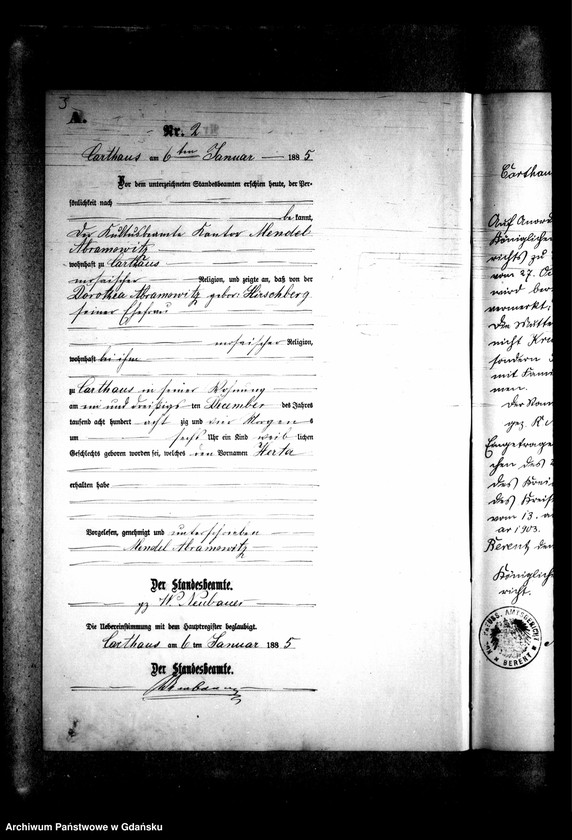 3
A.
Nr. 2
Carthaus am 6ten Januar 1885
Vor dem unterzeichneten Standesbeamten erschien heute, der Per-
sönlichkeit nach
bekannt,
Der Kultusbeamte Kantor Mendel
Abramowitz
wohnhaft zu Carthaus
mosaischer Religion, und zeigte an, daß von der
Dorothea Abramowitz gebor: Hirschberg
seiner Ehefrau
mosaischer Religion,
wohnhaft bei ihm
zu Carthaus in seiner Wohnung
am ein und dreißigs ten December des Jahres
tausend acht hundert acht zig und vier Morgens
um sechs Uhr ein Kind weib lichen
Geschlechts geboren worden sei, welches den Vornamen Herta
erhalten habe
Vorgelesen, genehmigt und unterschrieben
Mendel Abramowitz
Der Standesbeamte.
gz W. Neubauer
Die Uebereinstimmung mit dem Hauptregister beglaubigt.
Carthaus am 6 ten Januar 1885
Der Standesbeamte.
Neubauer
Carthau
Auf Anord
Königliche
richts zu
vom 27. Oc
wird
vermerkt,
nicht
sondern
mit
men.
der
gez.
Eingetrage
chen des
des Köni
des Kreis
vom 13.
ar 1903.
Berent den
Königlich
richt.
KGL. PREUSS. AMTSGERICHT
* BERENT *
Archiwum Państwowe w Gdańsku